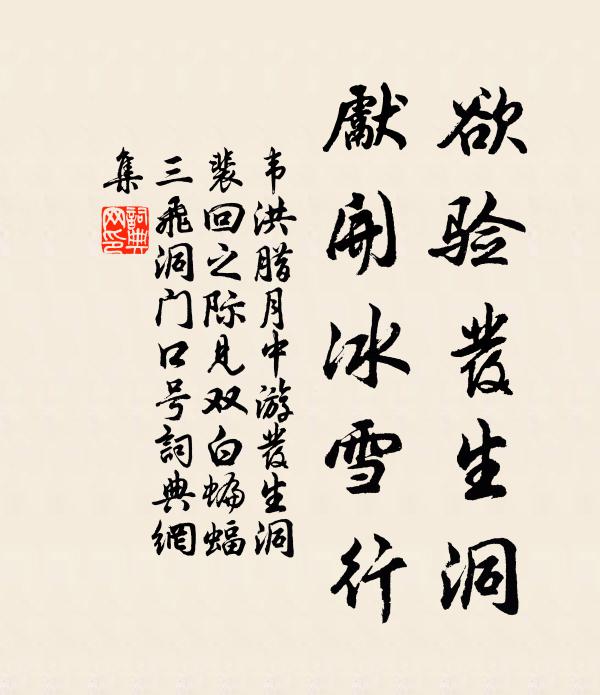 欲验發生洞
獻開冰雪行
韦洪腊月中游發生洞
裴回之际见双白蝙蝠
三飛洞门口号詞典網
集
詞典
网印